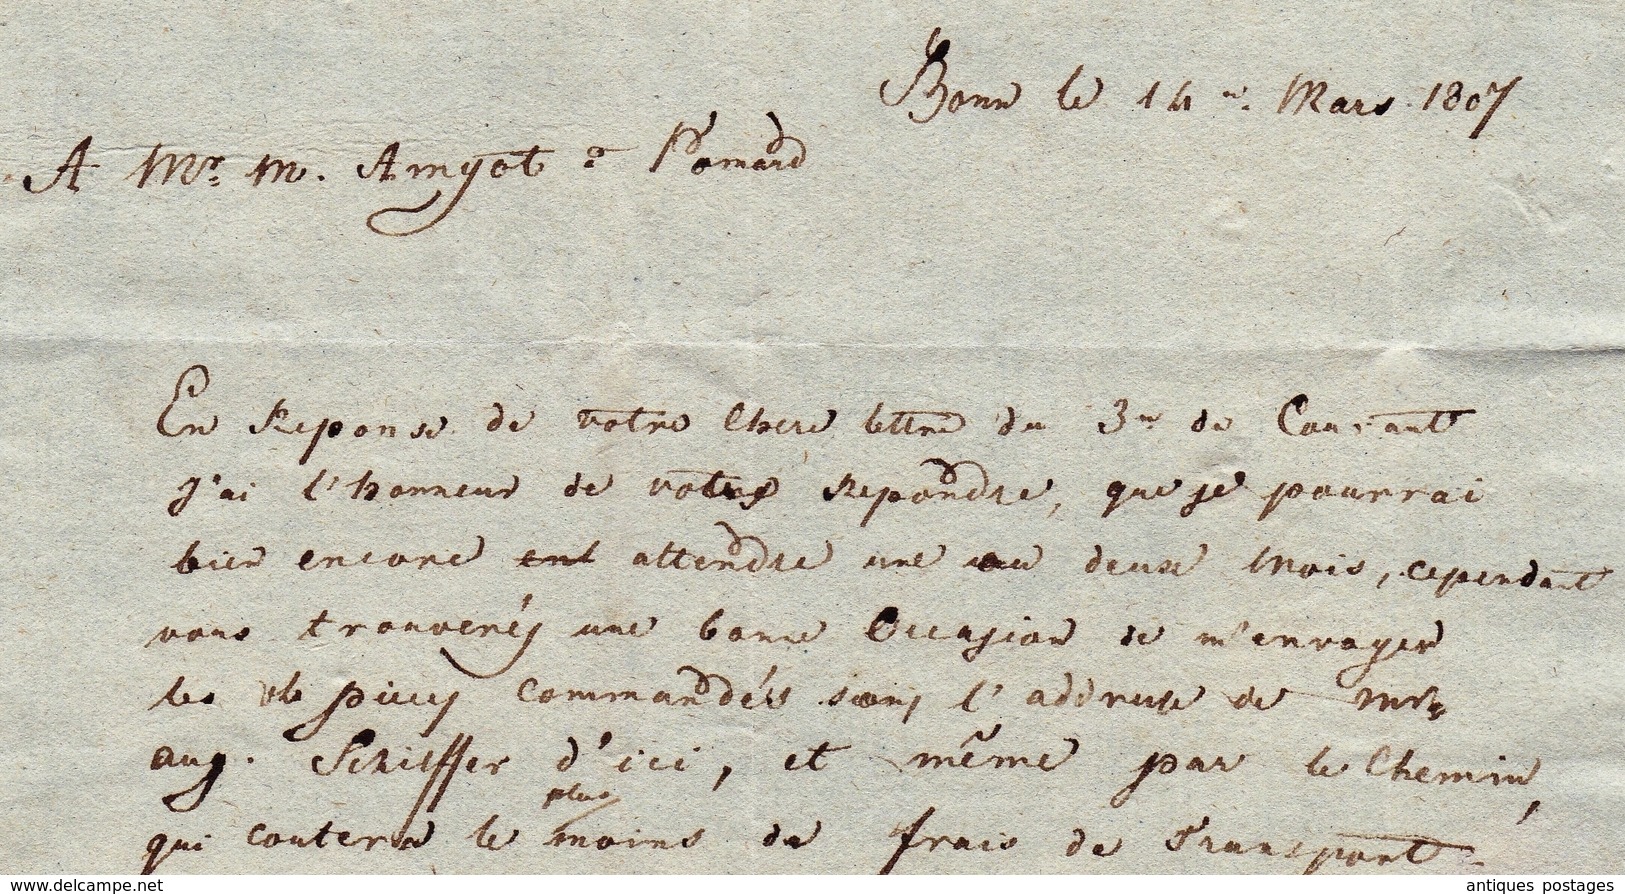 Bonn le 14me. Mars 1807
A Mr. M. Amyot a Pomard
En Reponse de votre Chere lettre du 3me de Courant
J'ai l'honneur de votre Repondre, que je pourrai
bien encore attendre une ou deuxe Mois, cependant
vous trouverés une bonne Occasion de m'envoyer
les pieces commandées sous l'addresse de Mr
Aug. Schieffer d'ici, et même par le Chemin,
plus
qui coutera le moins du frais de Transport.
www.delcampe.net
antiques postages